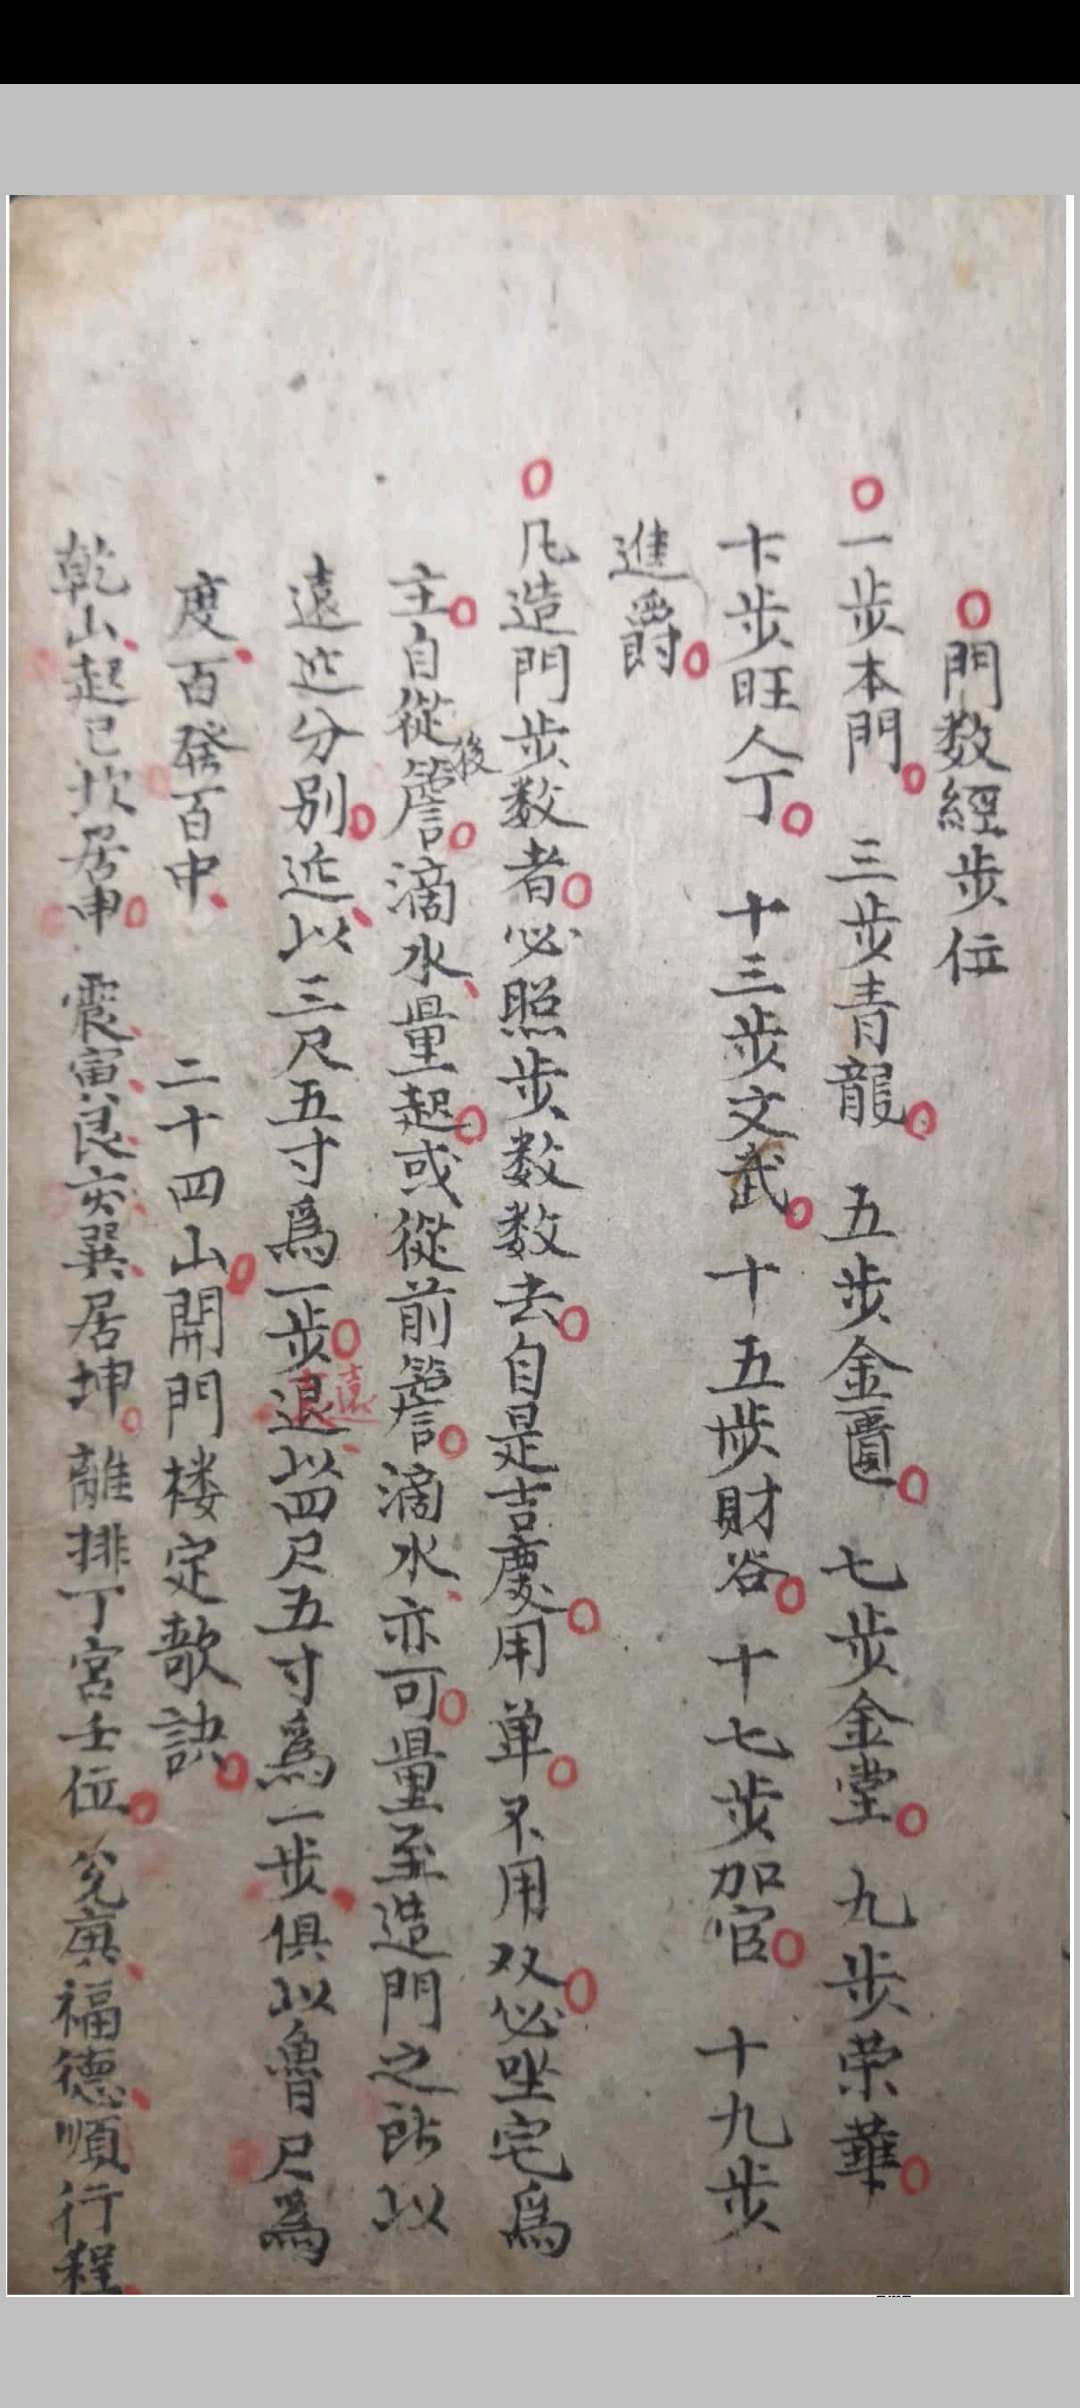 門数經步位
一步本門 三步青龍 五步金匱 七步金堂 九步荣華
十步旺人丁 十三步文武 十五步財谷 十七步加官 十九步
進爵
凡造門步数者必照步数数去自是吉慶用单不用双必坐宅爲
主自從後簷滴水量起或從前簷滴水亦可量至造門之所以
遠近分別近以三尺五寸爲一步遠以四尺五寸爲一步俱以魯尺爲
度百發百中 二十四山開門楼定歌訣
乾山起巳坎居申 震寅艮亥巽居坤 離排丁宮壬位 兑寅福德順行程